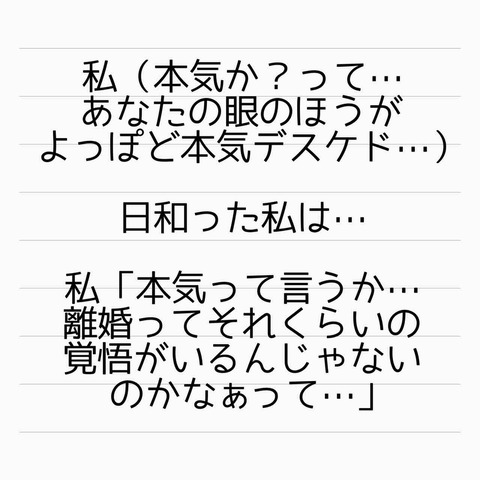 私（本気か？って…
あなたの眼のほうが
よっぽど本気デスケド…）
日和った私は…
私「本気って言うか…
離婚ってそれくらいの
覚悟がいるんじゃない
のかなぁって…」